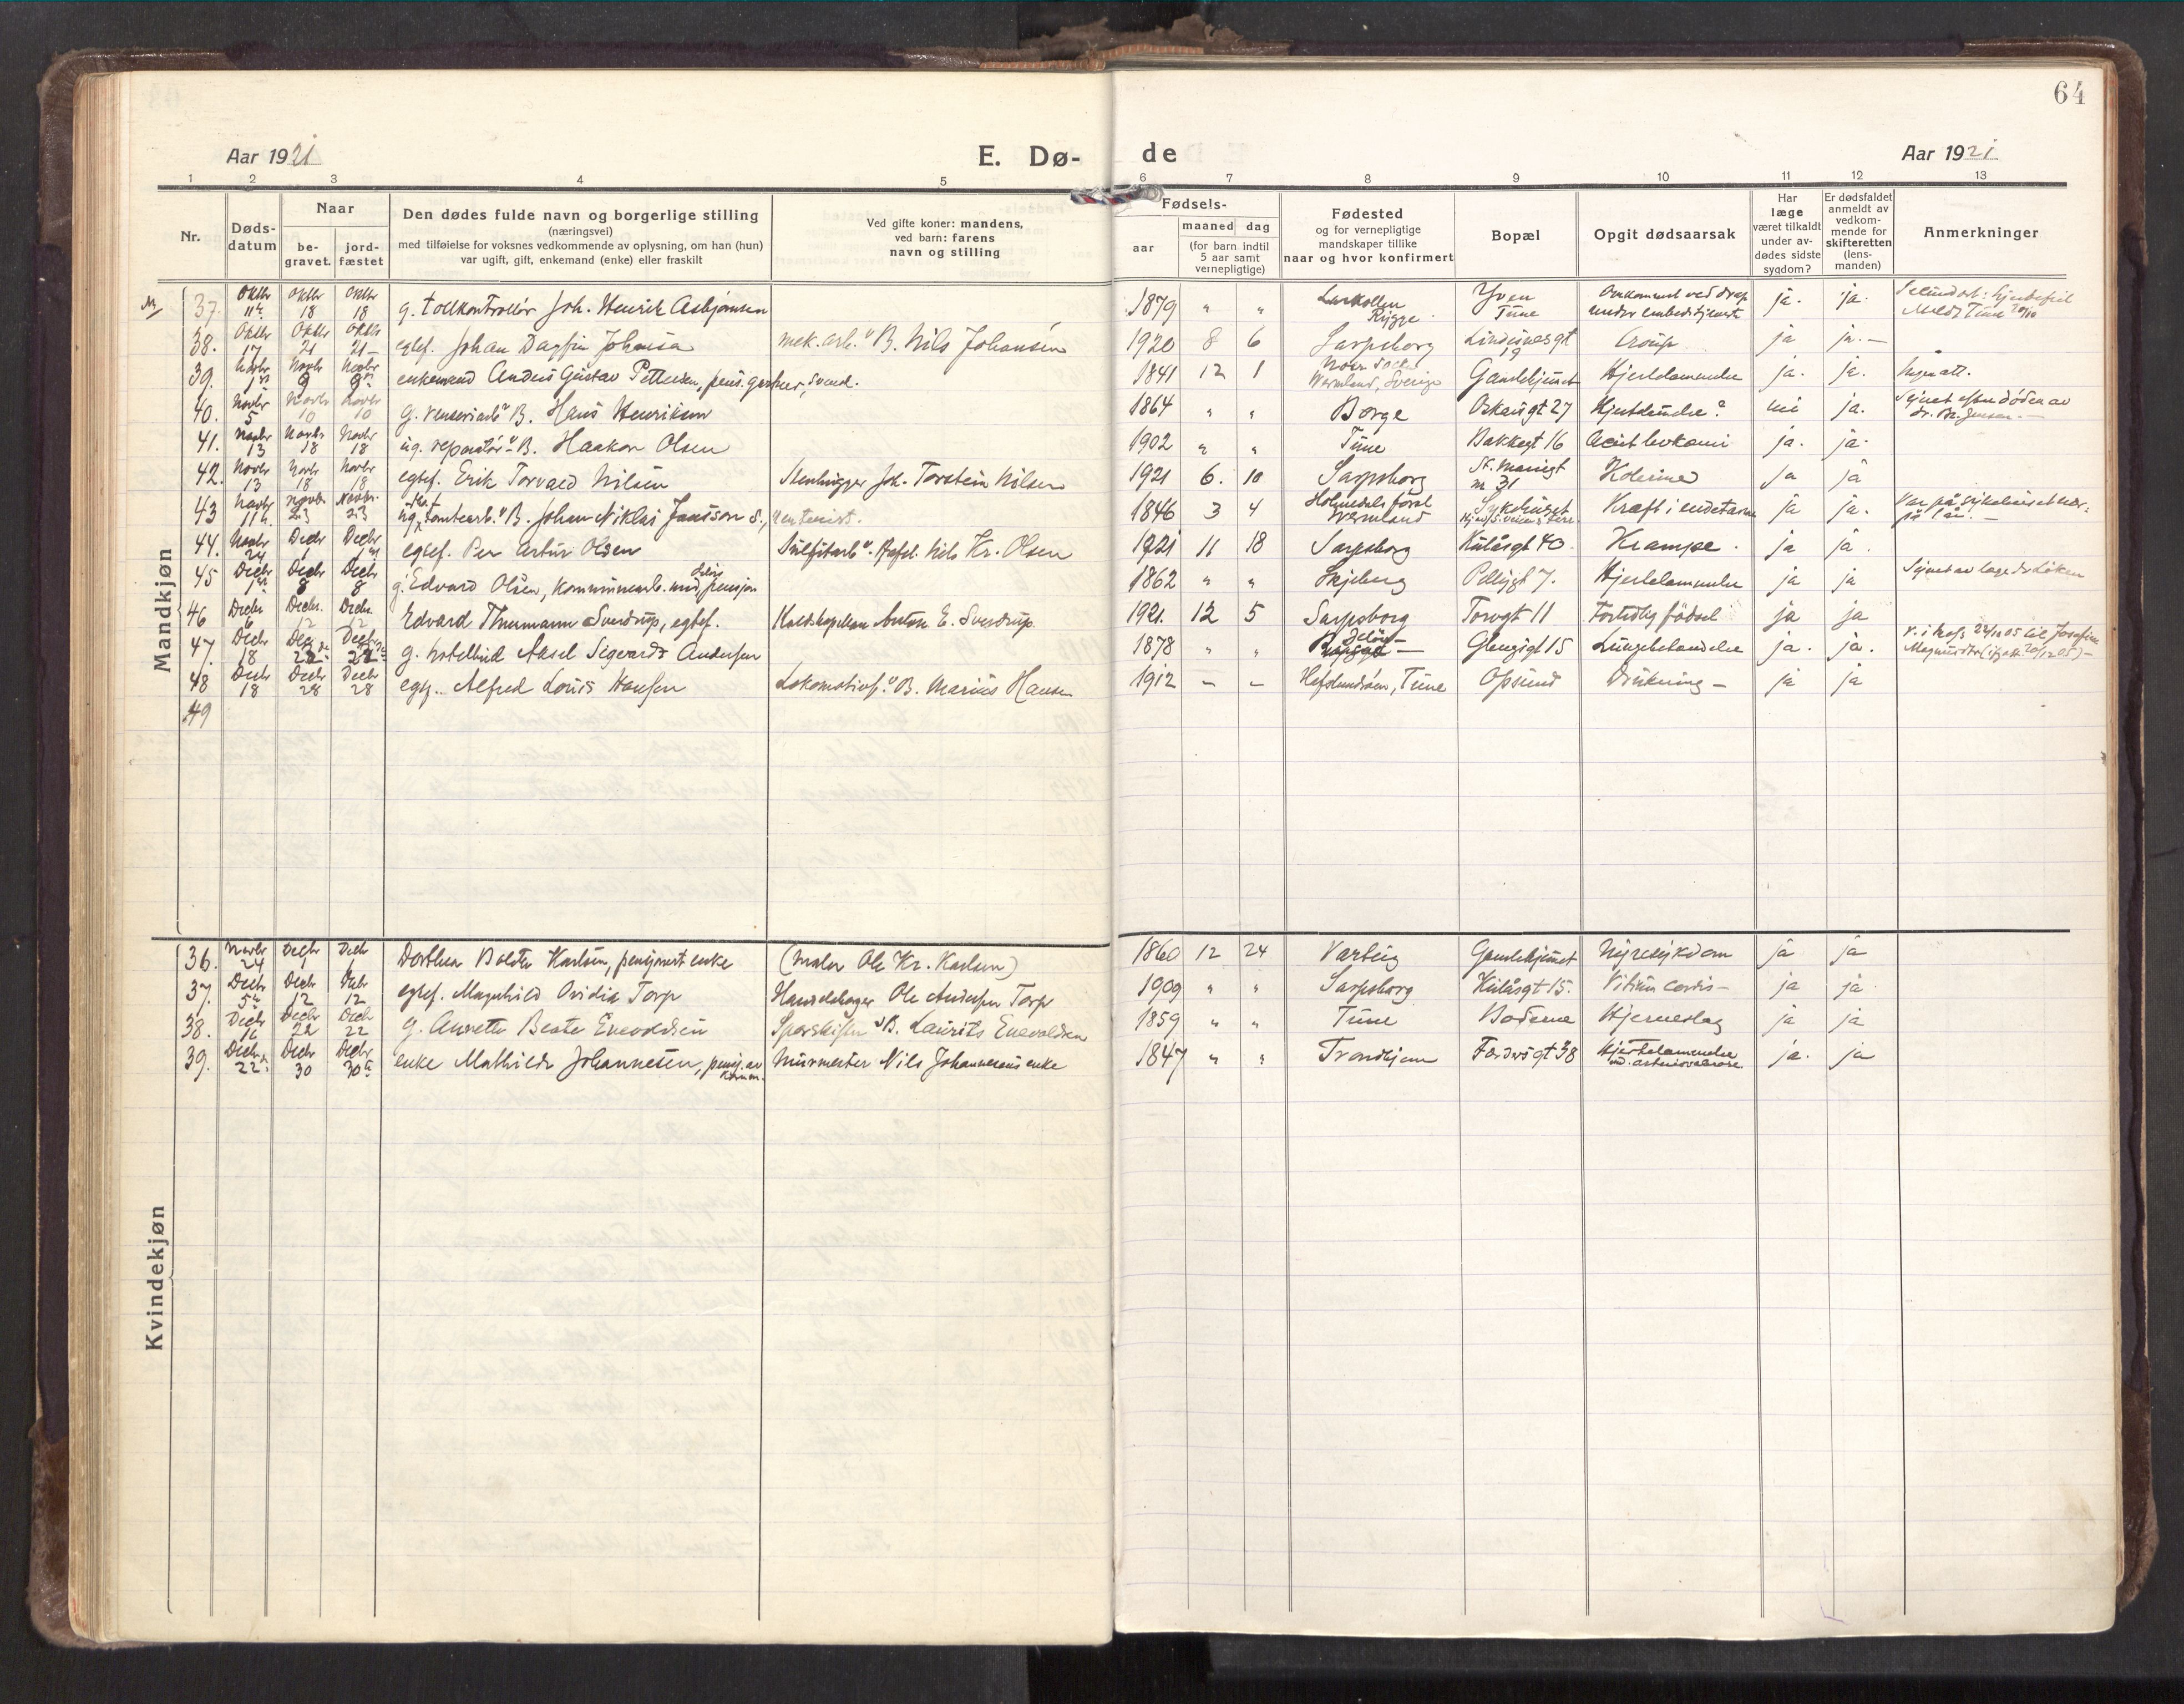 64
Aar 1921 E. Dø- de Aar 1921
1 2 3 4 5 6 7 8 9 10 11 12 13
Nr.
Døds-
datum
Naar
be-
gravet.
jord-
fæstet
Den dødes fulde navn og borgerlige stilling
(næringsvei)
med tilføielse for voksnes vedkommende av oplysning, om han (hun)
var ugift, gift, enkemand (enke) eller fraskilt
Ved gifte koner: mandens,
ved barn: farens
navn og stilling
Fødsels-
aar
maaned dag
(for barn indtil
5 aar samt
vernepligtige)
Fødested
og for vernepligtige
mandskaper tillike
naar og hvor konfirmert
Bopæl
Opgit dødsaarsak
Har
læge
været tilkaldt
under av-
dødes sidste
sygdom?
Er dødsfaldet
anmeldt av
vedkom-
mende for
skifteretten
(lens-
manden)
Anmerkninger
Mandkjøn
37. Oktbr 11 Oktbr 18 Oktbr 18 g. tollkontrollør Joh. Henrik Asbjørnsen 1879 " " Larkollen Rygge Yven Tune Omkommet ved drap under embedstjeneste ja. ja.
38. Oktbr 17 Oktbr 21 Oktbr 21 egtef. Johan Dagfin Johansen mek. arb. B. Nils Johansen 1920 8 6 Sarpsborg Lindenesgt 19 Croup ja ja.
39. Novbr 1 Novbr 9 Novbr 9 enkemand Anders Gustav Pettersen, pens. 1841 12 1 Wermland, Sverige Gamlehjemmet Hjertelammelse ja. ja. Ingen att.
40. Novbr 5 Novbr 10 Novbr 10 g. B. Hans Henriksen 1864 " " Borge Oskarsgt 27 Hjertelammelse? nei ja. Synet efter døden av dr.
41. Novbr 13 Novbr 18 Novbr 18 ug. reparatør B. Haakon Olsen 1902 " " Tune Bakkegt 16 Acut levkemi ja. ja.
42. Novbr 13 Novbr 18 Novbr 18 egtef. Erik Torvald Nilsen Stenhugger Joh. Torstein Nilsen 1921 6. 10 Sarpsborg St. Mariegt nr 31 Kolerine ja ja
43 Novbr 11 Novbr 23 Novbr. 23 ug. tomtearb. B. Johan Niklas Jansson 1846 3 4 Wermland Sykehuset Kræft i endetarm ja ja.
44. Novbr 24 Decbr 1 Decbr 1 egtef. Per Artur Olsen Sulfitarb. Nils Kr. Olsen 1921 11 18 Sarpsborg Kulåsgt 40 Krampe. ja ja.
45 Decbr 1 Decbr 8 Decbr 8 g. Edvard Olsen, kommunearb. med pensjon 1862 " " Skjeberg Pellygt 7. Hjertelammelse ja ja Synet av læge dr Løken
46 Decbr 6 Decbr. 12 Decbr. 12 Edvard Thurmann Sverdrup, egtef. Kaldskapellan Anton E. Sverdrup 1921. 12 5 Sarpsborg Torvgt 11 Fortidlig fødsel ja ja
47. Decbr 18 Decbr 22 Decbr 22 g. hotelbud Aksel Segvard Andersen 1878 " " Jeløy Glengsgt 15 Lungebetændelse ja. ja.
48 Decbr 18 Decbr 28 Decbr 28 egtf. Alfred Louis Hansen Lokomotivf. B. Marius Hansen 1912 — — Hafslundsøen, Tune Opsund Drukning — ja ja
49
Kvindekjøn
36. Novbr 24 Decbr 1 Decbr 1 Dorthea Karlsen, pensjonert enke (Maler Ole Kr. Karlsen) 1860 12 24 Varteig Gamlehjemmet Nyresykdom ja ja
37. Decbr 5 Decbr 12 Decbr 12 egtef. Magnhild Ovidia Torp Handelsbager Ole Andersen Torp 1909 " " Sarpsborg Kulåsgt 15. Vitium cordis — ja ja
38. Decbr 16 Decbr 22 Decbr 22 g. Annette Beate Enevoldsen B. Laurits Enevoldsen 1859 " " Tune Boderne Hjerneslag ja ja
39. Decbr 22 Decbr 30 Decbr 30 enke Mathilde Johannesen, pensj. av komm. Murmester Nils Johannesens enke 1847 " " Trondhjem Færdersgt 38 Hjertelammelse ja. ja